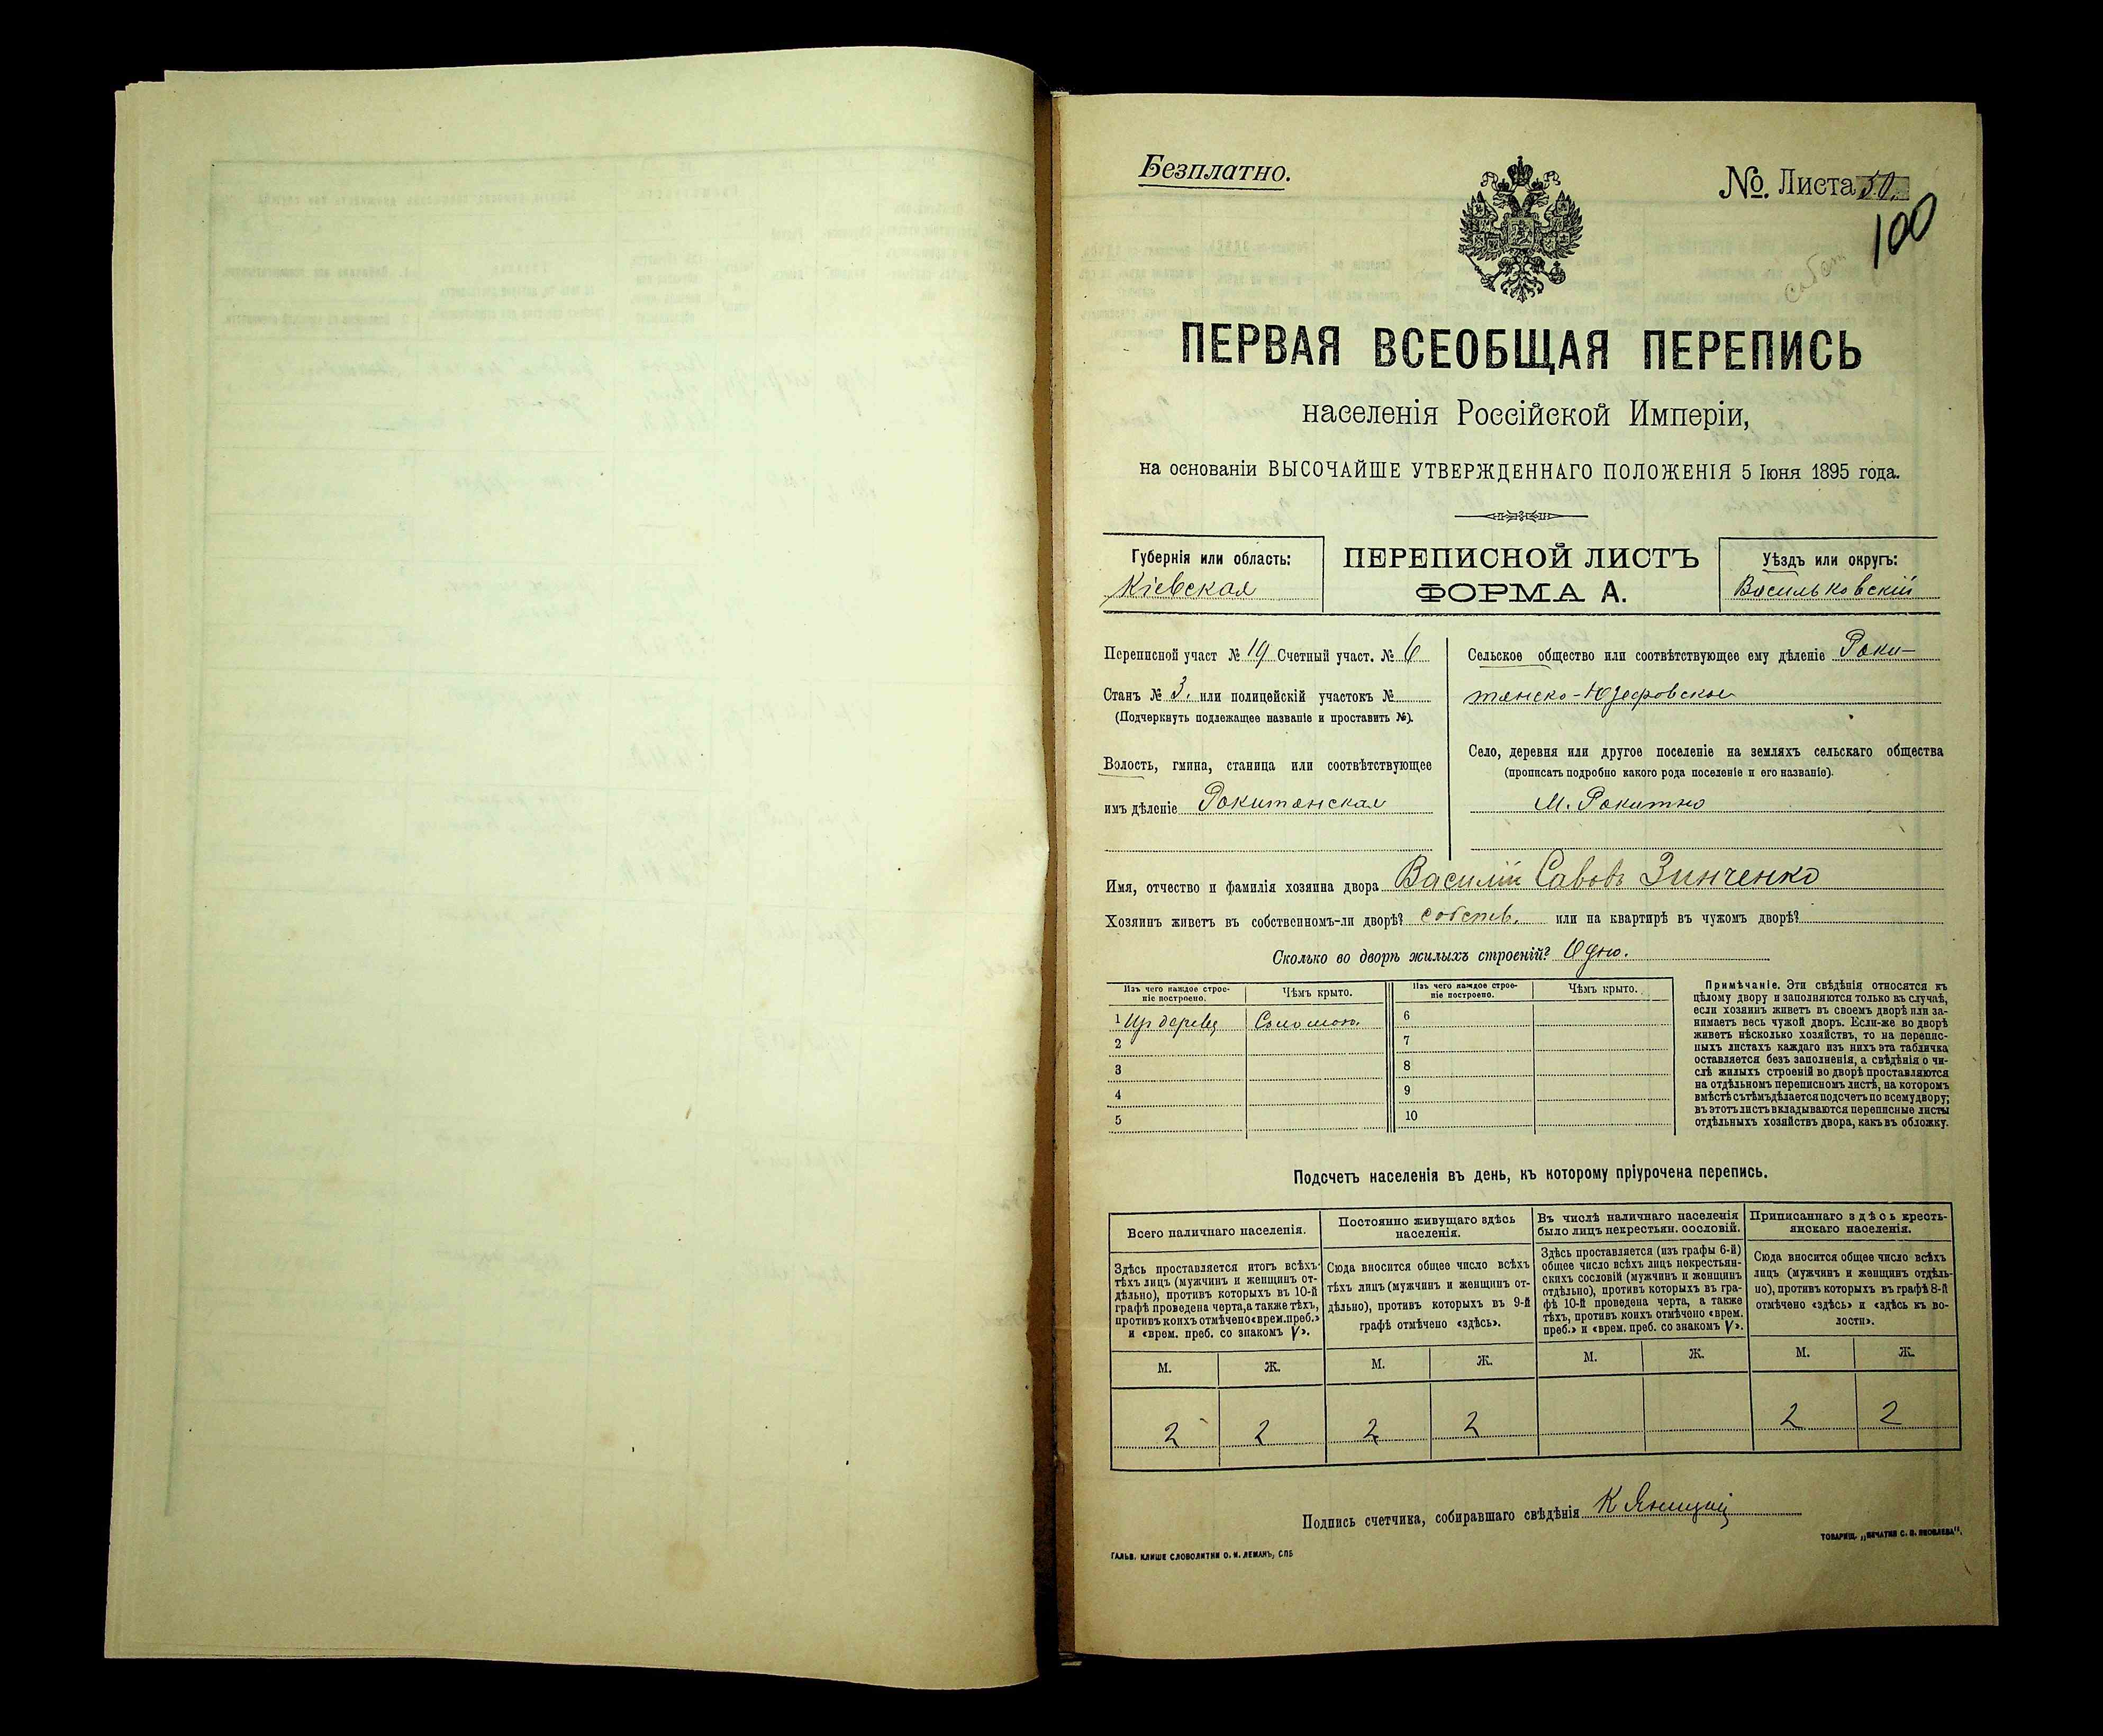 Безплатно.
№. Листа 50.
100
ПЕРВАЯ ВСЕОБЩАЯ ПЕРЕПИСЬ
населенія Россійской Имперіи,
на основаніи ВЫСОЧАЙШЕ УТВЕРЖДЕННАГО ПОЛОЖЕНІЯ 5 Іюня 1895 года.
Губернія или область:
Кіевская
ПЕРЕПИСНОЙ ЛИСТЪ
ФОРМА А.
Уѣздъ или округъ:
Васильковскій
Переписной участ № 19 Счетный участ. № 6
Станъ № 3. или полицейскій участокъ №
(Подчеркнуть подлежащее названіе и проставить №).
Волость, гмина, станица или соотвѣтствующее
имъ дѣленіе Рокитянская
Сельское общество или соотвѣтствующее ему дѣленіе Роки-
тянско-Юзефовское
Село, деревня или другое поселеніе на земляхъ сельскаго общества
(прописать подробно какого рода поселеніе и его названіе).
М. Рокитно
Имя, отчество и фамилія хозяина двора Василій Савовъ Зинченко
Хозяинъ живетъ въ собственномъ-ли дворѣ? собств. или на квартирѣ въ чужомъ дворѣ?
Сколько во дворѣ жилыхъ строеній? Одно.
Изъ чего каждое строе-
ніе построено.
Чѣмъ крыто.
1 Из дерева Соломою.
2
3
4
5
Изъ чего каждое строе-
ніе построено.
Чѣмъ крыто.
6
7
8
9
10
Примѣчаніе. Эти свѣдѣнія относятся къ
цѣлому двору и заполняются только въ случаѣ,
если хозяинъ живетъ въ своемъ дворѣ или за-
нимаетъ весь чужой дворъ. Если-же во дворѣ
живетъ нѣсколько хозяйствъ, то на перепис-
ныхъ листахъ каждаго изъ нихъ эта табличка
оставляется безъ заполненія, а свѣдѣнія о чи-
слѣ жилыхъ строеній во дворѣ проставляются
на отдѣльномъ переписномъ листѣ, на которомъ
вмѣстѣ съ тѣмъ дѣлается подсчетъ по всему двору;
въ этотъ листъ вкладываются переписные листы
отдѣльныхъ хозяйствъ двора, какъ въ обложку.
Подсчетъ населенія въ день, къ которому пріурочена перепись.
Всего наличнаго населенія.
Здѣсь проставляется итогъ всѣхъ
тѣхъ лицъ (мужчинъ и женщинъ от-
дѣльно), противъ которыхъ въ 10-й
графѣ проведена черта, а также тѣхъ,
противъ коихъ отмѣчено «врем. преб.»
и «врем. преб. со знакомъ V».
М. Ж.
2 2
Постоянно живущаго здѣсь
населенія.
Сюда вносится общее число всѣхъ
тѣхъ лицъ (мужчинъ и женщинъ от-
дѣльно), противъ которыхъ въ 9-й
графѣ отмѣчено «здѣсь».
М. Ж.
2 2
Въ числѣ наличнаго населенія
было лицъ некрестьян. сословій.
Здѣсь проставляется (изъ графы 6-й)
общее число всѣхъ лицъ некрестьян-
скихъ сословій (мужчинъ и женщинъ
отдѣльно), противъ которыхъ въ гра-
фѣ 10-й проведена черта, а также
тѣхъ, противъ коихъ отмѣчено «врем.
преб.» и «врем. преб. со знакомъ V».
М. Ж.
Приписаннаго здѣсь кресть-
янскаго населенія.
Сюда вносится общее число всѣхъ
лицъ (мужчинъ и женщинъ отдѣль-
но), противъ которыхъ въ графѣ 8-й
отмѣчено «здѣсь» и «здѣсь къ во-
лости».
М. Ж.
2 2
Подпись счетчика, собиравшаго свѣдѣнія К
ГАЛЬВ. КЛИШЕ СЛОВОЛИТНИ О. И. ЛЕМАНЪ, СПБ
ТОВАРИЩ. „ПЕЧАТНЯ С. П. ЯКОВЛЕВА".